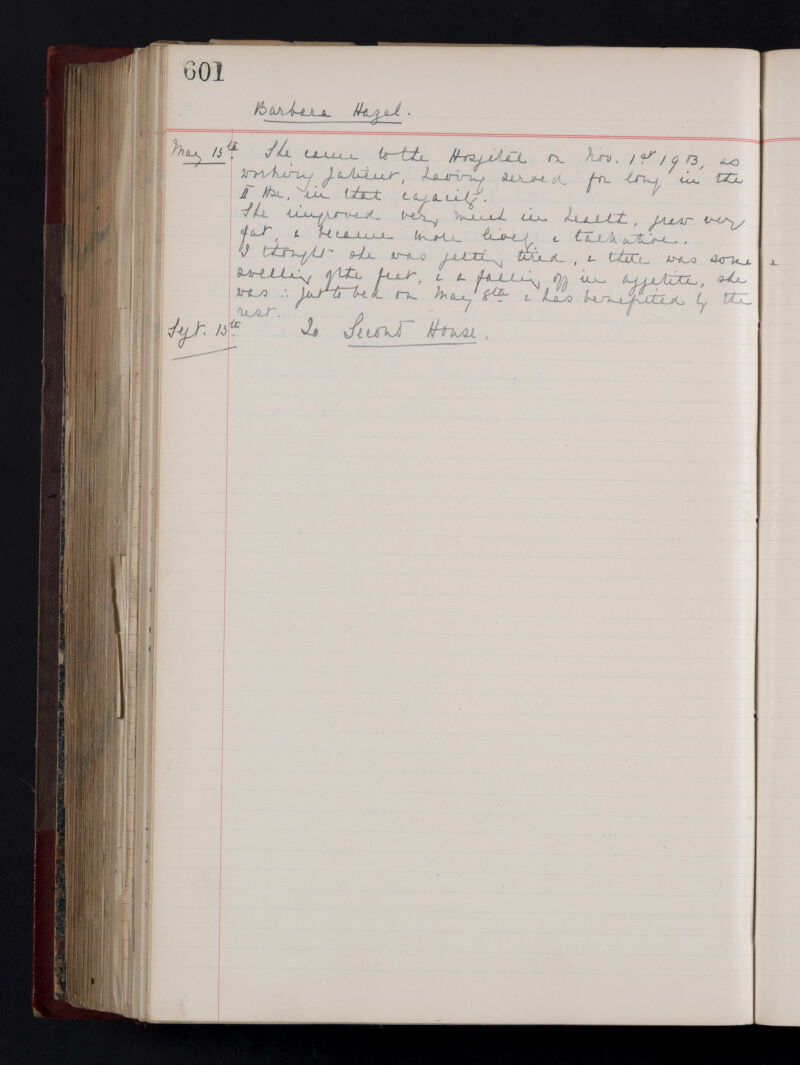 601
Barbara Hazel.
May 15th. She came to the Hospital on Nov. 1st 1903, as
working patient, having served for long in the
II Hse, in that capacity.
She improved very much in health, grew very
fat, & became more lively & talkative.
I thought she was getting tired, & there was some
swelling of the feet, & a falling off in appetite, she
was ∴ put to bed on May 8th & has benefited by the
rest.
Sept. 15th. To Second House.